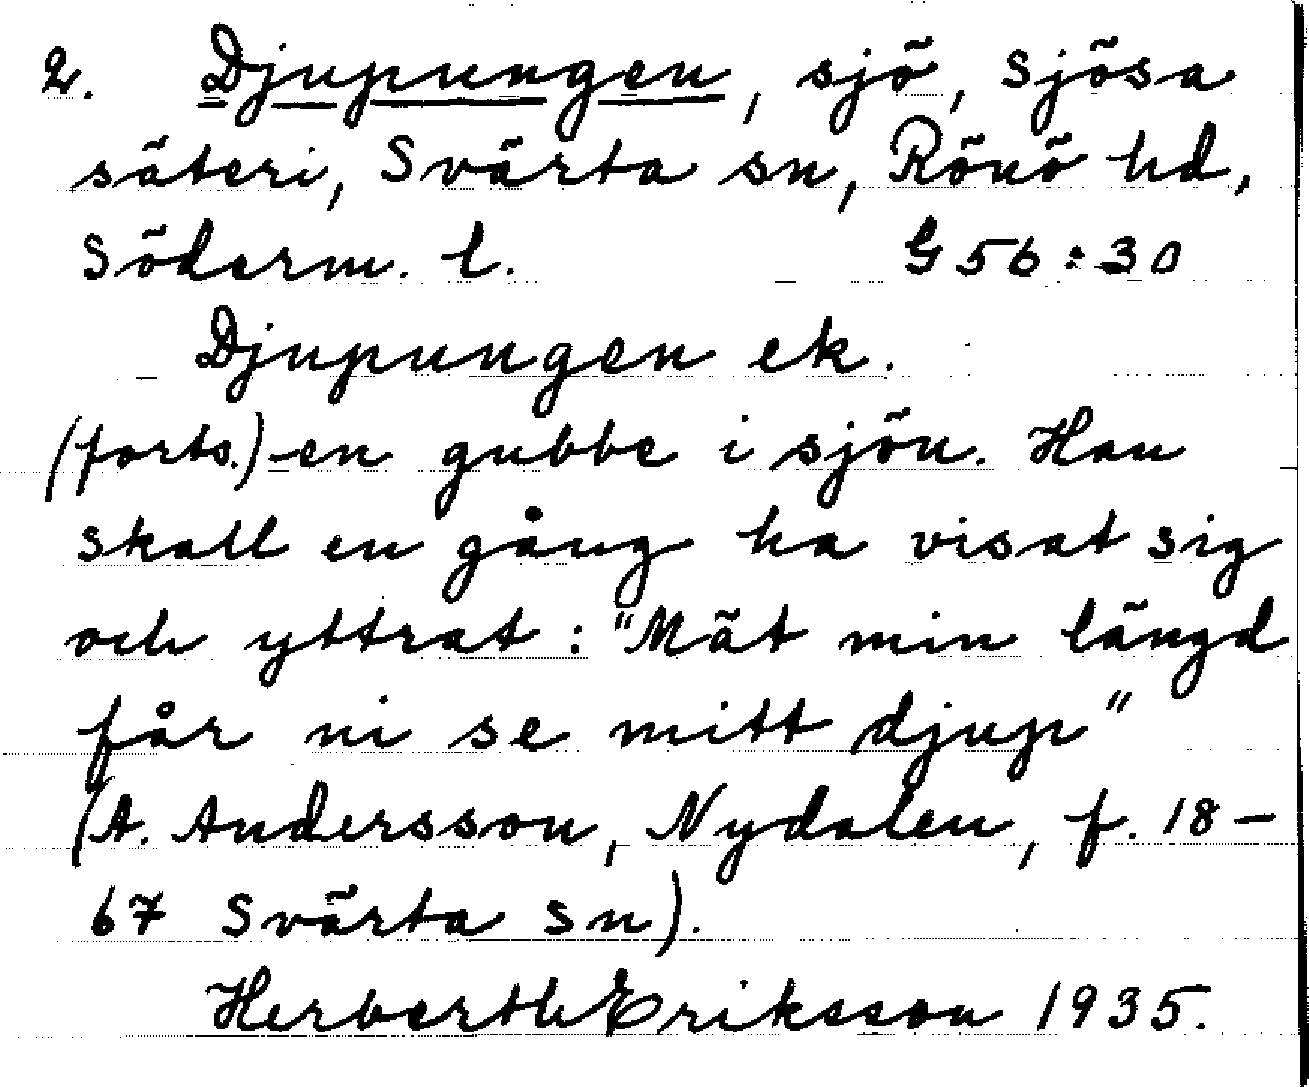 2. Djupungen, sjö, Sjösa
säteri, Svärta sn, Rönö hd,
Söderm. l. G 56:30
Djupungen ek.
(forts.) en gubbe i sjön. Han
skall en gång ha visat sig
och yttrat: "Mät min längd
får ni se mitt djup"
(A. Andersson, Nydalen, f. 18-
67 Svärta sn).
Herberth Eriksson 1935.